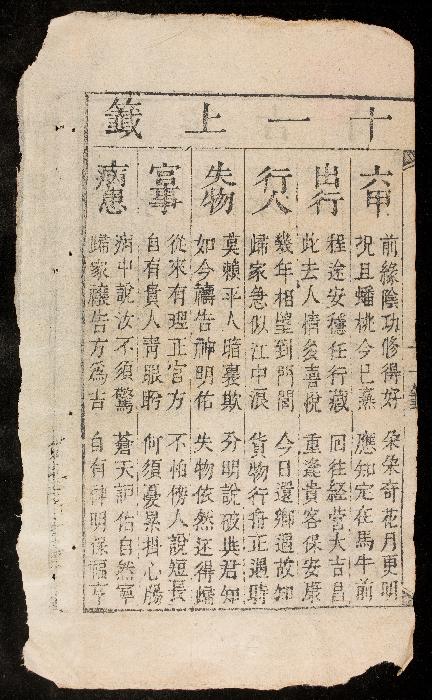 十一上籤
六甲
前緣陰功修得好 朵朵奇花月更明
況且蟠桃今已熟 應知定在馬牛前
出行
程途安穩任行藏 回往經營大吉昌
此去人情多喜悅 重逢貴客保安康
行人
幾年相望到門閭 今日還鄉遇故知
歸家急似江中浪 貨物行舟正遇時
失物
莫賴平人暗裏欺 分明說破與君知
如今禱告神明佑 失物依然还得歸
官事
從來有理正官方 不怕傍人說短長
自有貴人靑眼盼 何須憂累掛心腸
病患
病中說汝不須驚 蒼天評佑自然寧
歸家禳告方為吉 自有神明保福亨
十一籤